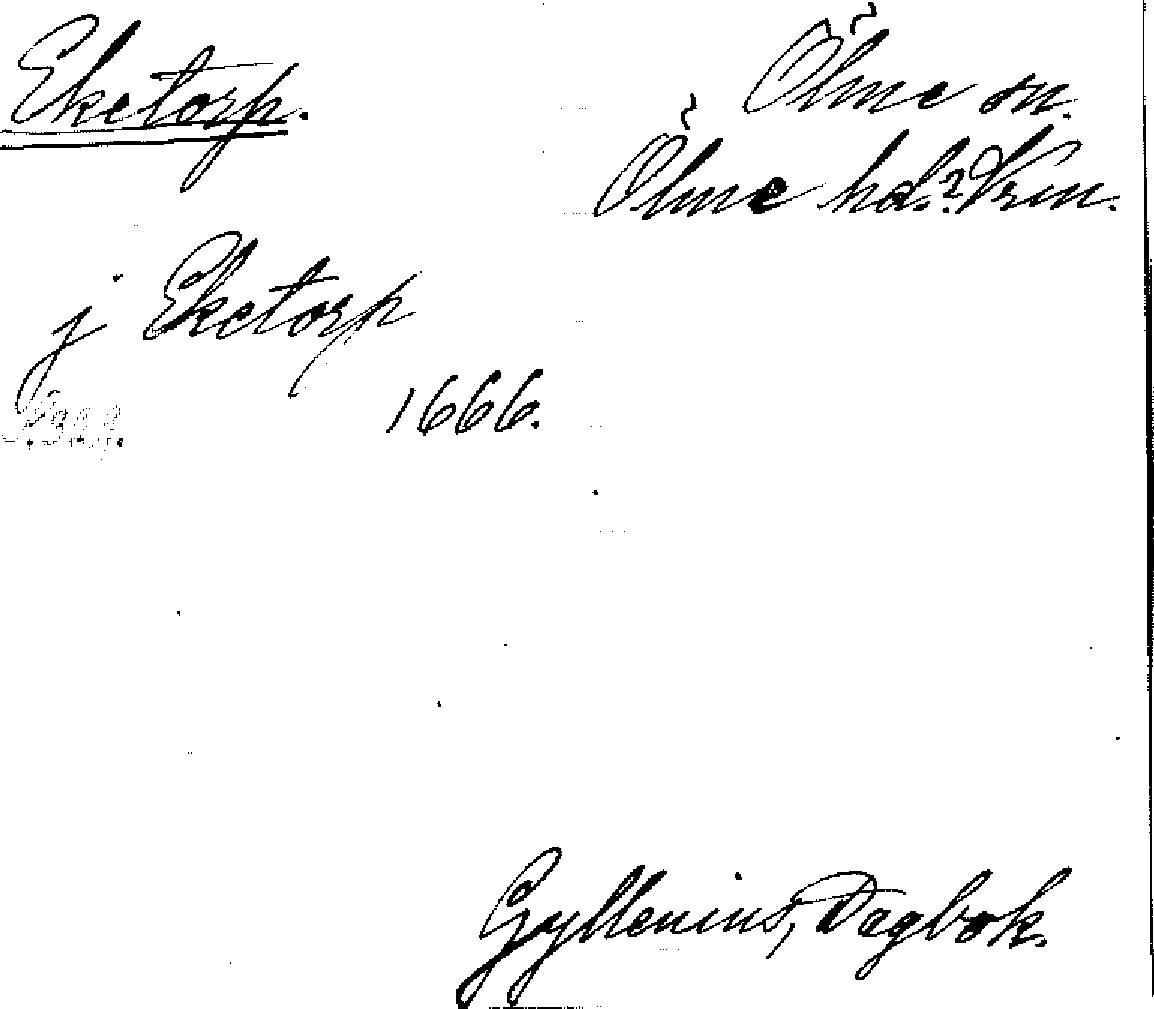 Eketorp.
Ölme sn.
Ölme hd.? Vrm.
j Eketorp
1666.
Gyllenius, Dagbok.